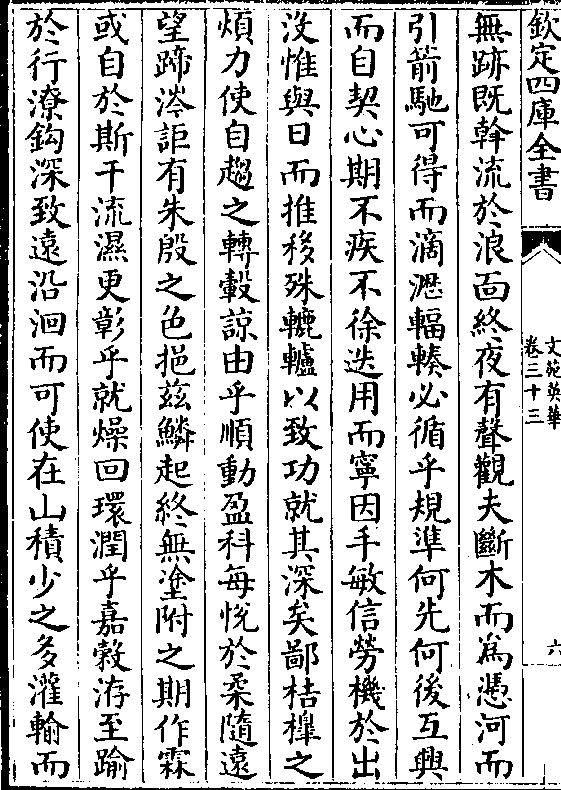 欽定四庫全書
文苑英華
卷三十三
六
無跡既斡流於浪面終夜有聲觀夫斷木而為憑河而
引箭馳可得而滴瀝輻輳必循乎規準何先何後互興
而自契心期不疾不徐迭用而寧因手敏信勞機於出
沒惟與日而推移殊轆轤以致功就其深矣鄙桔橰之
煩力使自趨之轉轂諒由乎順動盈科每恱於柔隨遠
望蹄涔詎有朱殷之色挹兹鱗起終無塗附之期作霖
或自於斯干流濕更彰乎就燥回環潤乎嘉榖洊至踰
於行潦鈎深致遠沿洄而可使在山積少之多灌輸而